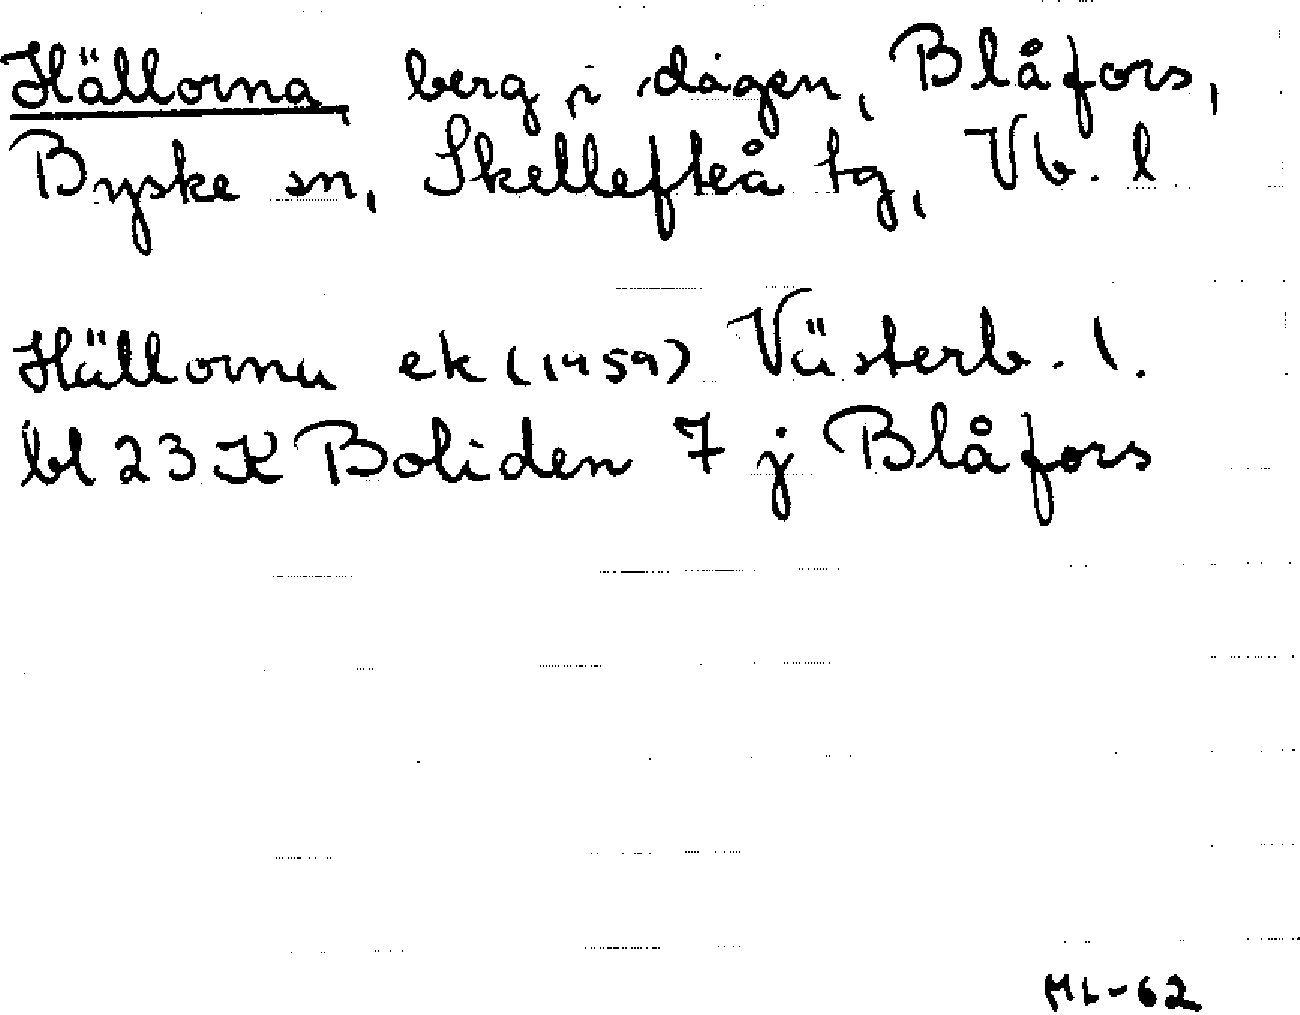 Hällorna, berg i dagen, Blåfors,
Byske sn, Skellefteå tg, Vb. l
Hällorna ek (1959) Västerb. l.
bl 23 K Boliden 7 j Blåfors
ML-62